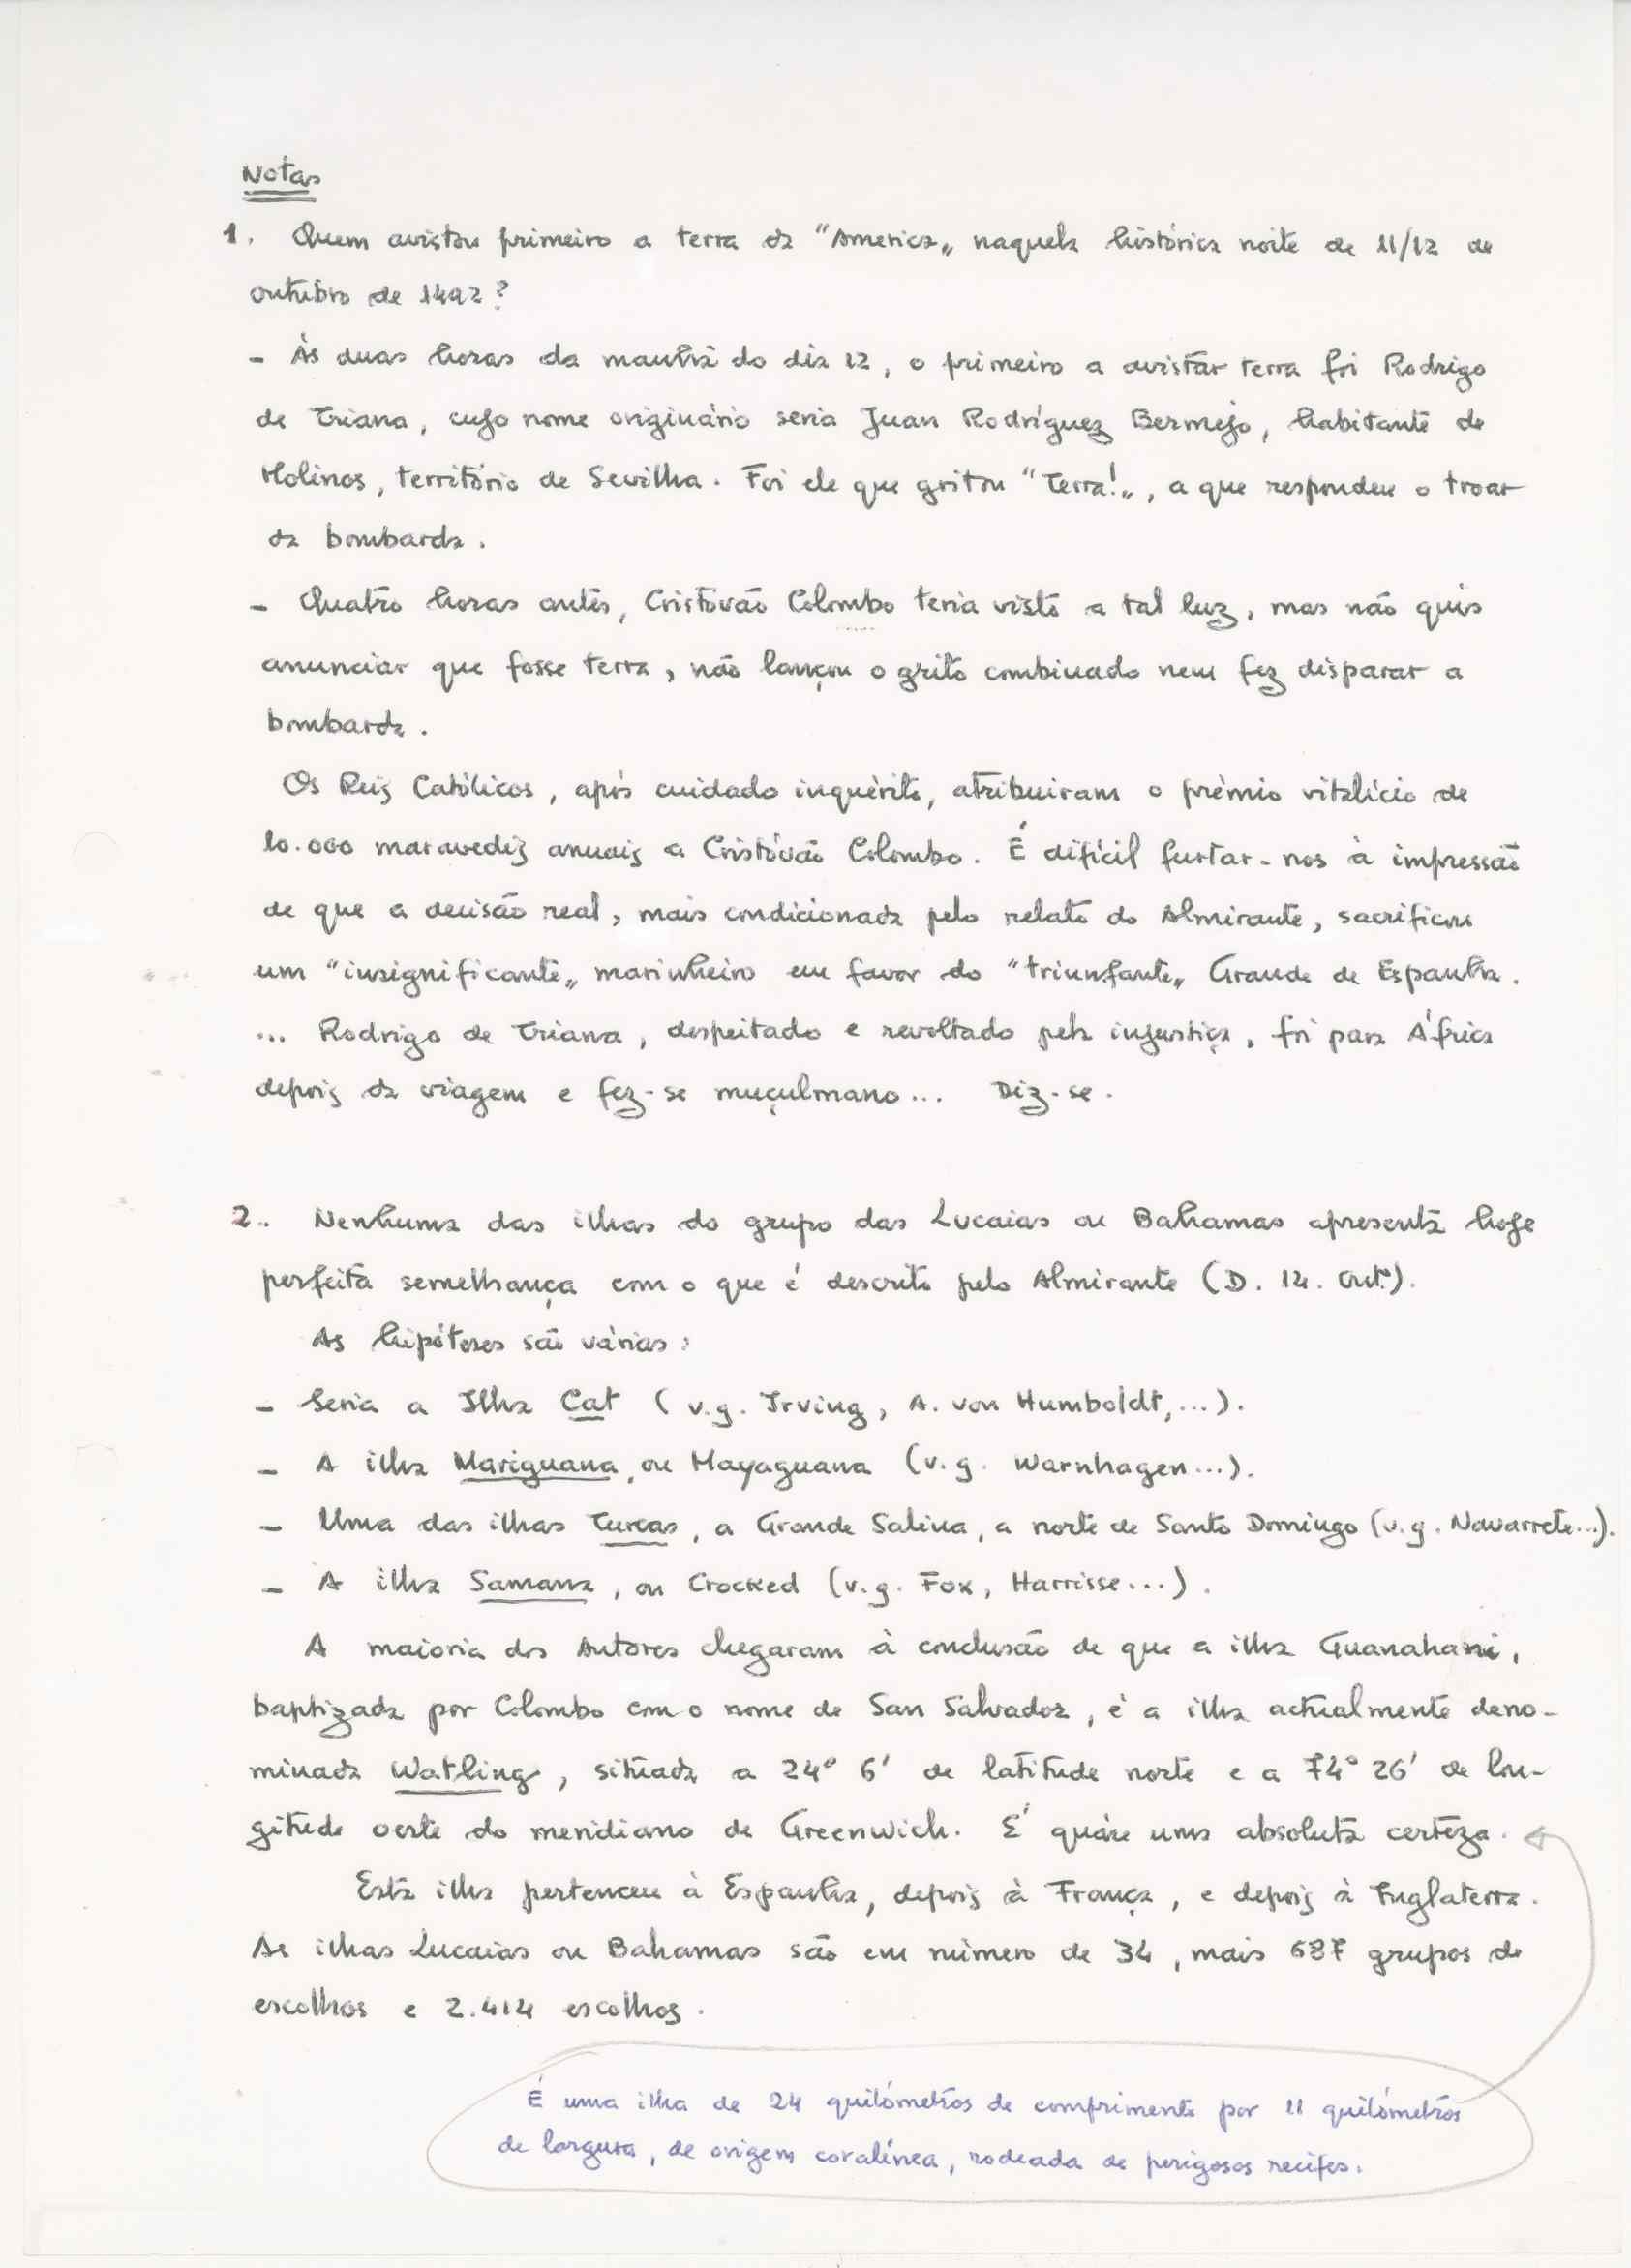 Notas
1. Quem avistou primeiro a terra da "America" naquela histórica noite de 11/12 de
outubro de 1492?
- Às duas horas da manhã do dia 12, o primeiro a avistar terra foi Rodrigo
de Triana, cujo nome originário seria Juan Rodríguez Bermejo, habitante de
Molinos, território de Sevilha. Foi ele que gritou "Terra!", a que respondeu o troar
da bombarda.
- Quatro horas antes, Cristóvão Colombo teria visto a tal luz, mas não quis
anunciar que fosse terra, não lançou o grito combinado nem fez disparar a
bombarda.
Os Reis Católicos, após cuidado inquérito, atribuiram o prémio vitalício de
10.000 maravedis anuais a Cristóvão Colombo. É difícil furtar-nos à impressão
de que a decisão real, mais condicionada pelo relato do Almirante, sacrificou
um "insignificante" marinheiro em favor do "triunfante" Grande de Espanha.
... Rodrigo de Triana, despeitado e revoltado pela injustiça, foi para África
depois da viagem e fez-se muçulmano... Diz-se.
2. Nenhuma das ilhas do grupo das Lucaias ou Bahamas apresenta hoje
perfeita semelhança com o que é descrito pelo Almirante (D. 14. Out.º).
As hipóteses são várias:
- Seria a Ilha Cat (v.g. Irving, A. von Humboldt,...).
- A ilha Mariguana, ou Mayaguana (v.g. Warnhagen...).
- Uma das ilhas Turcas, a Grande Salina, a norte de Santo Domingo (v.g. Navarrete...).
- A ilha Samana, ou Crocked (v.g. Fox, Harrisse...).
A maioria dos Autores chegaram à conclusão de que a ilha Guanahani,
baptizada por Colombo com o nome de San Salvador, é a ilha actualmente deno-
minada Watling, situada a 24° 6' de latitude norte e a 74° 26' de lon-
gitude oeste do meridiano de Greenwich. É quáse uma absoluta certeza.
Esta ilha pertenceu à Espanha, depois à França, e depois à Inglaterra.
As ilhas Lucaias ou Bahamas são em número de 34, mais 687 grupos de
escolhos e 2.414 escolhos.
É uma ilha de 24 quilómetros de comprimento por 11 quilómetros
de largura, de origem coralínea, rodeada de perigosos recifes.